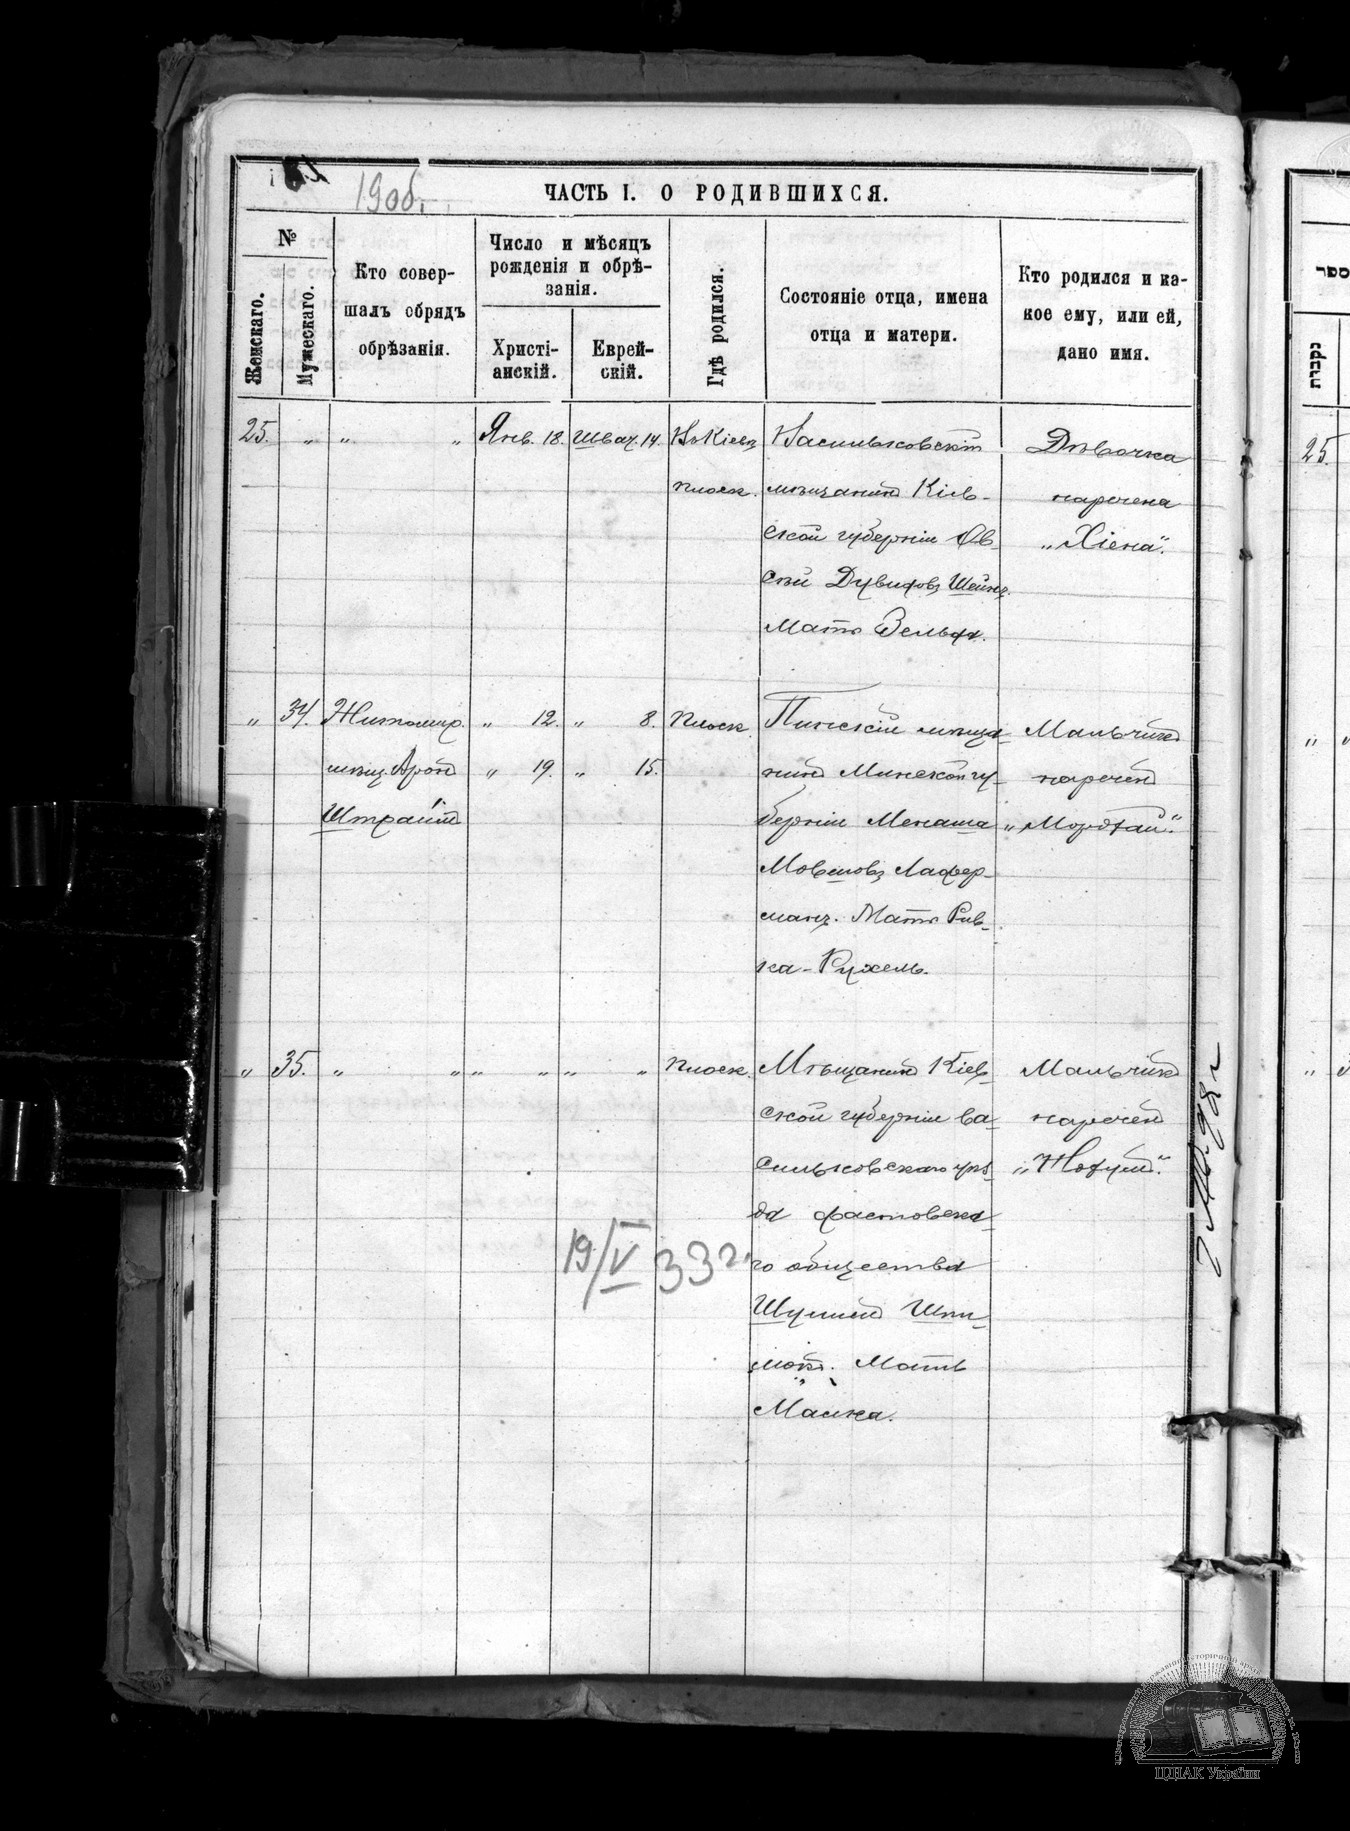 1906.
ЧАСТЬ I. О РОДИВШИХСЯ.
№
Женскаго.
Мужескаго.
Кто совер-
шалъ обрядъ
обрѣзанія.
Число и мѣсяцъ
рожденія и обрѣ-
занія.
Христі-
анскій.
Еврей-
скій.
Гдѣ родился.
Состояніе отца, имена
отца и матери.
Кто родился и ка-
кое ему, или ей,
дано имя.
25. " " " Янв. 18. Шват. 14. Въ Кіевѣ
плоск.
Васильковскій
мѣщанинъ Кіев-
ской губерніи Ов-
сѣй Дувидовъ Шейнъ.
Мать Вельфа.
Дѣвочка
наречена
„Хіена".
" 34. Житомир.
мѣщ. Аронъ
Штраймъ
" 12. " 8.
" 19. " 15.
Плоск.
Пинскій мѣща-
нинъ Минской гу-
берніи Менаша
Мовшовъ Лафер-
манъ. Мать Рив-
ка-Рухель.
Мальчикъ
нареченъ
„Мордхай".
" 35. " " " " " "
Плоск.
Мѣщанинъ Кіев-
ской губерніи Ва-
сильковскаго уѣз-
да Фастовска-
го общества
Шулимъ
Мать
Малка.
Мальчикъ
нареченъ
„Нохумъ".
19/V 33 г.
ספר
נקבות
25.
ЦДІАК України